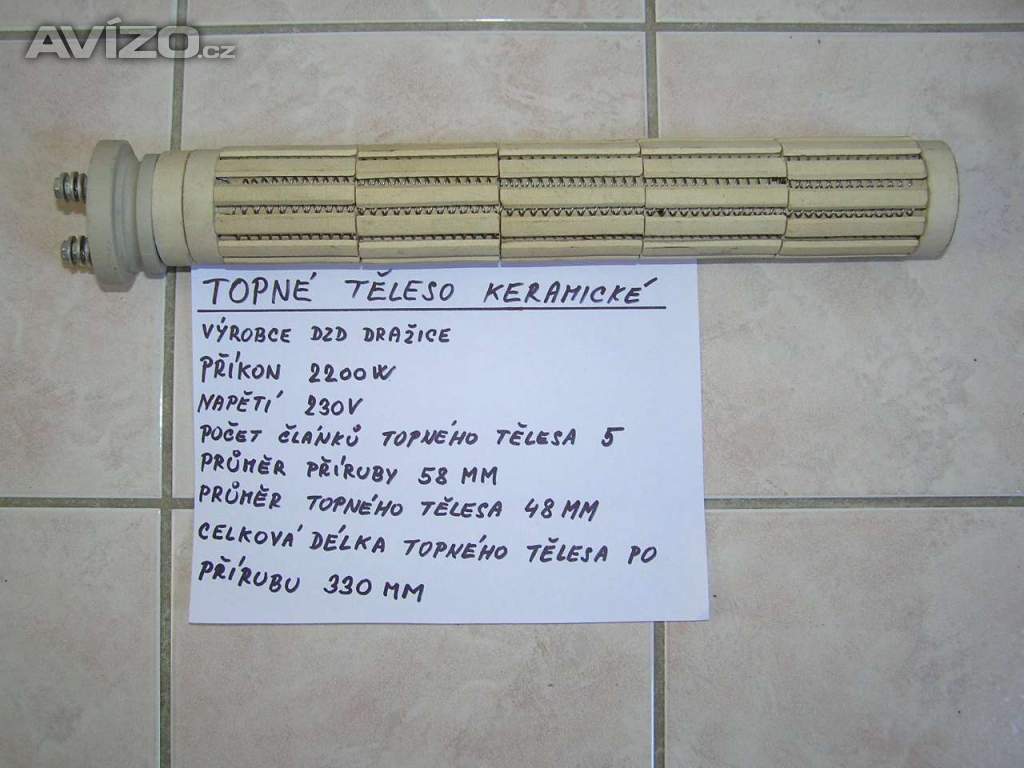 AVÍZO.cz
TOPNÉ TĚLESO KERAMICKÉ
VÝROBCE DZD DRAŽICE
PŘÍKON 2200W
NAPĚTÍ 230V
POČET ČLÁNKŮ TOPNÉHO TĚLESA 5
PRŮMĚR PŘÍRUBY 58 MM
PRŮMĚR TOPNÉHO TĚLESA 48 MM
CELKOVÁ DÉLKA TOPNÉHO TĚLESA PO
PŘÍRUBU 330 MM